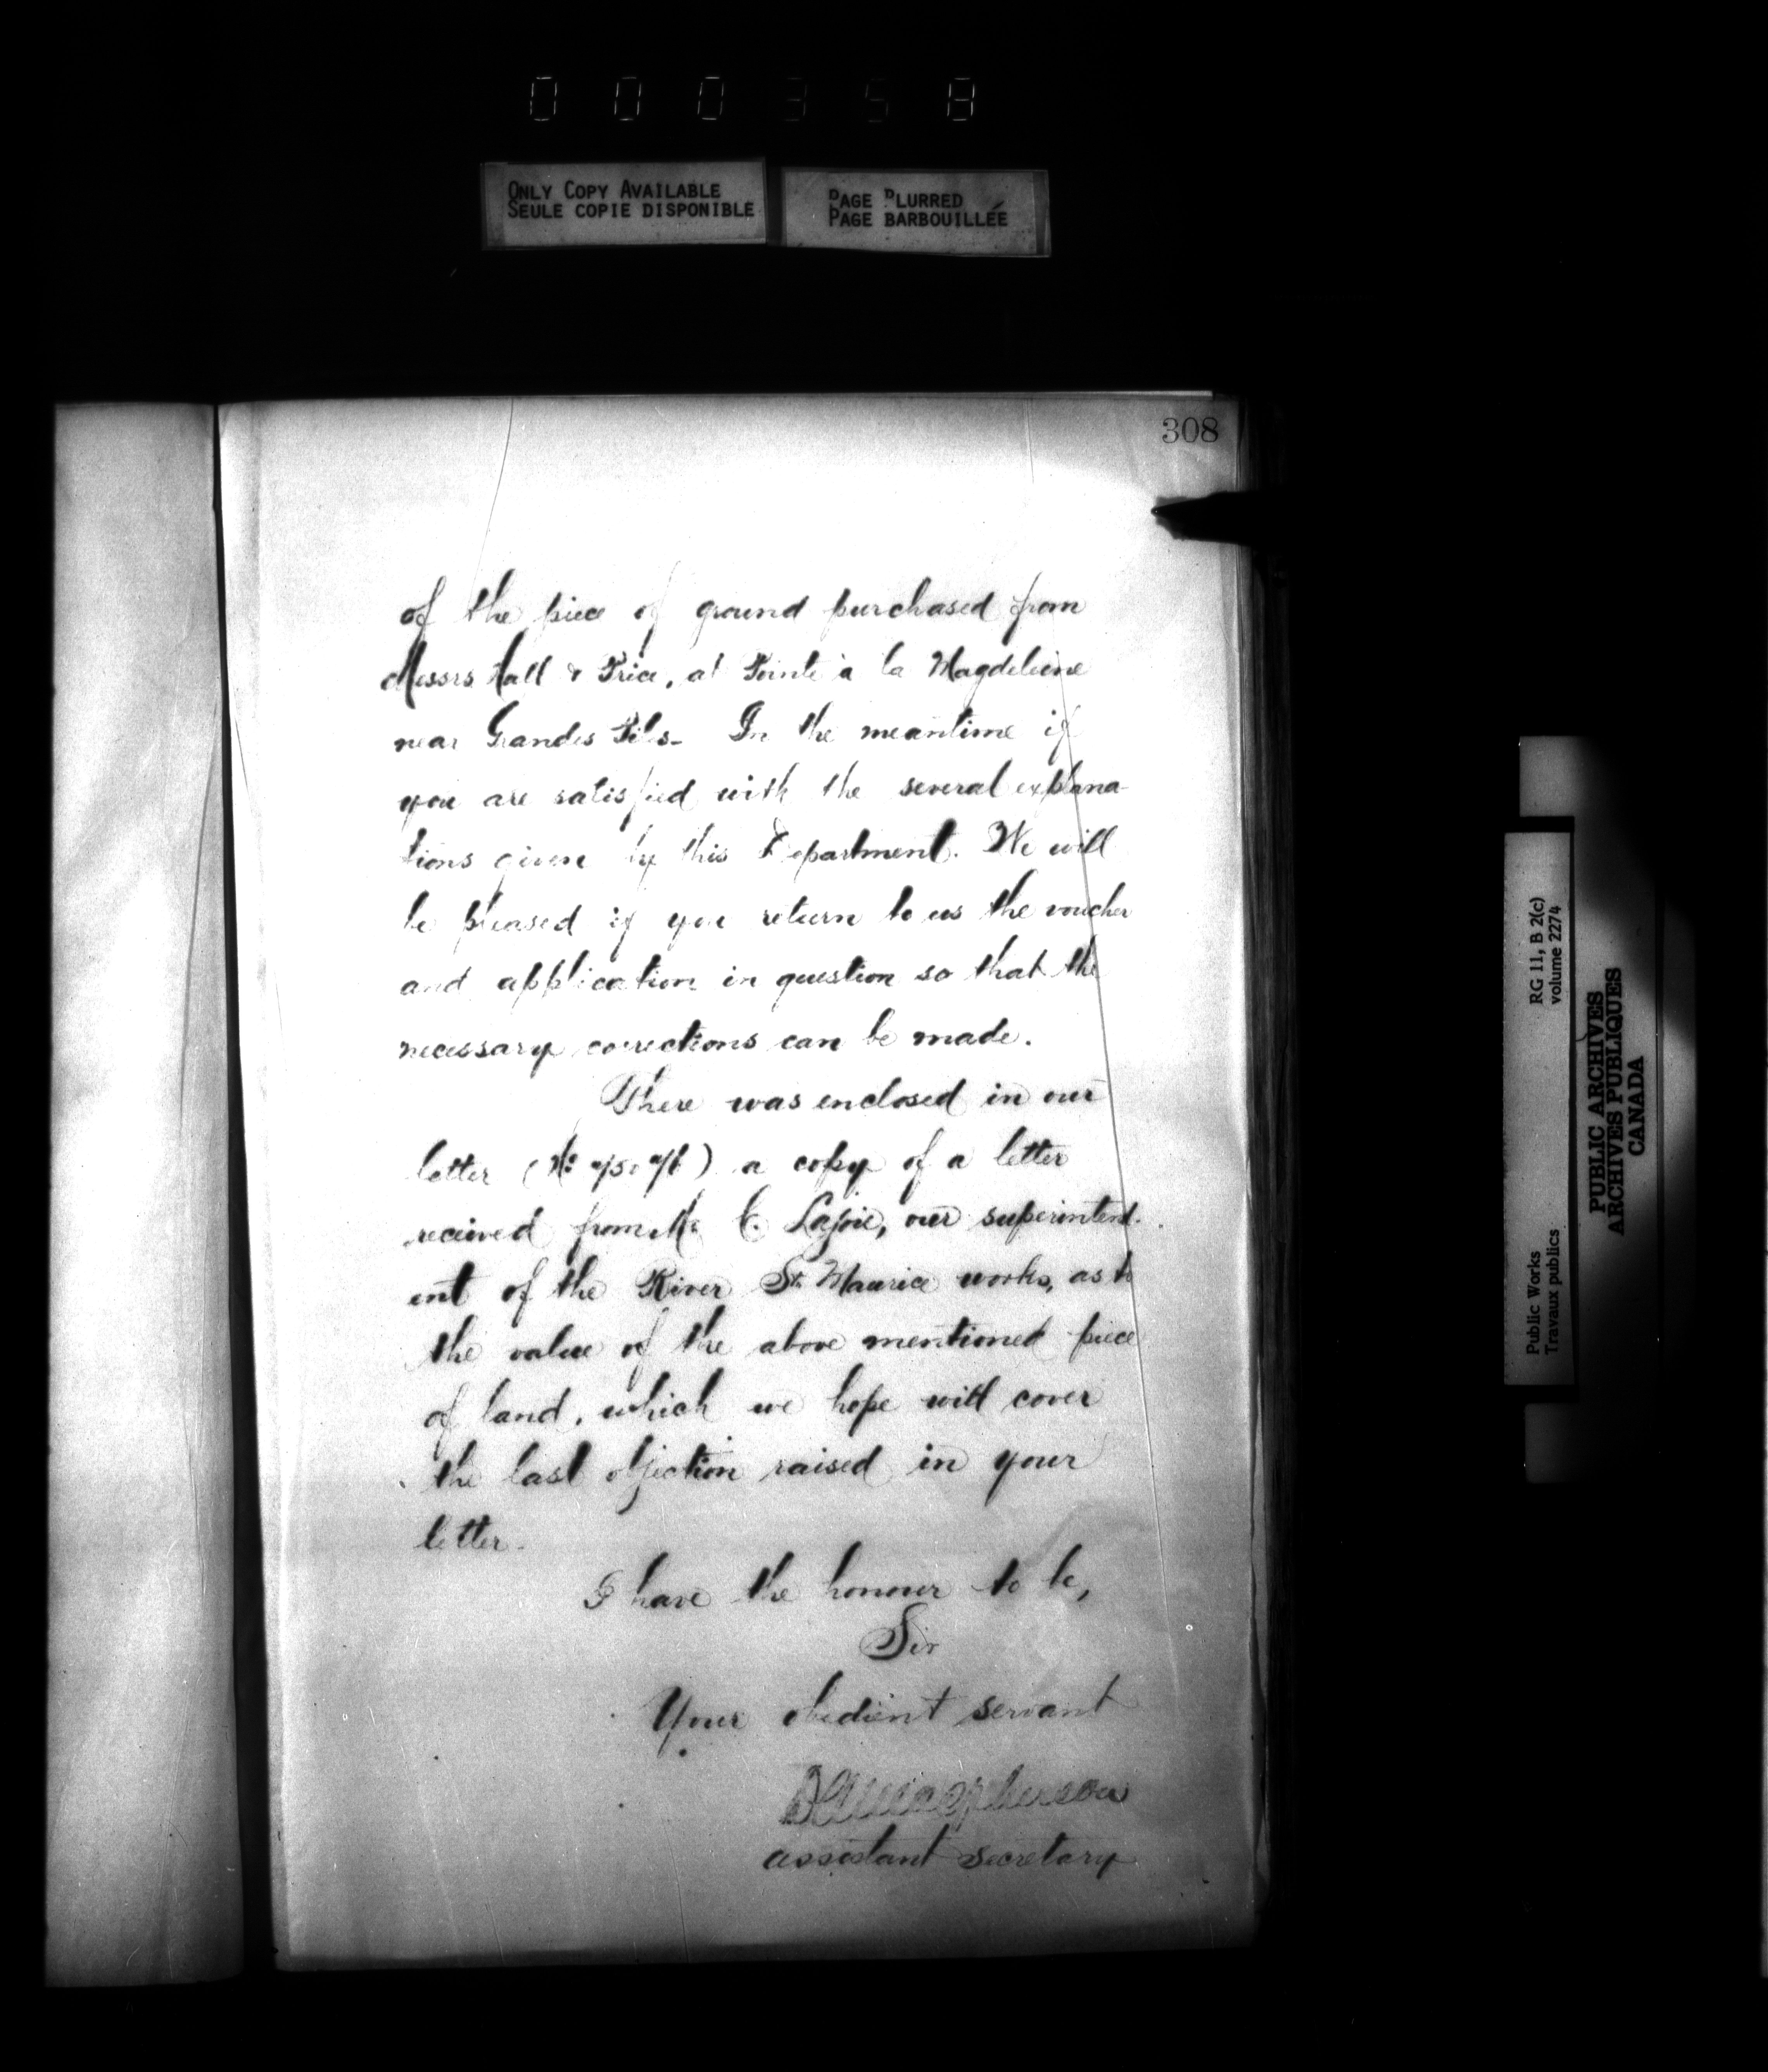 000358
ONLY COPY AVAILABLE
SEULE COPIE DISPONIBLE
PAGE BLURRED
PAGE BARBOUILLÉE
308
of the piece of ground purchased from
Messrs Hall & Price, at Pointe à la Magdeleine
near Grandes Piles - In the meantime if
you are satisfied with the several explana-
tions given by this Department. We will
be pleased if you return to us the voucher
and application in question so that the
necessary corrections can be made.
There was enclosed in our
letter (No ) a copy of a letter
received from Mr C. Lajoie, our superintend-
ent of the River St. Maurice works, as to
the value of the above mentioned piece
of land, which we hope will cover
the last objection raised in your
letter.
I have the honour to be,
Sir
Your obedient servant
assistant secretary
RG 11, B 2(c)
volume 2274
Public Works
Travaux publics
PUBLIC ARCHIVES
ARCHIVES PUBLIQUES
CANADA